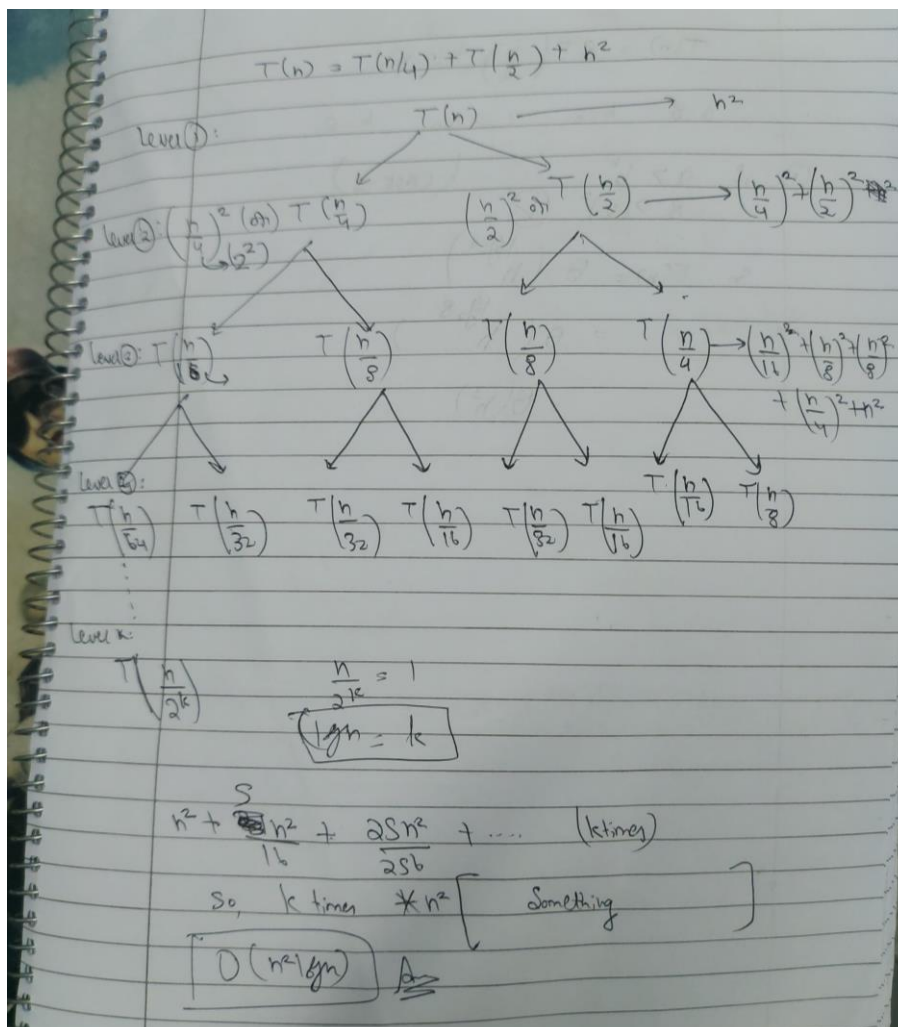 T(n) = T(n/4) + T(n/2) + n²
T(n) → n²
level ①:
level ②: (n/4)² (or) T(n/4) (n/2)² or T(n/2) → (n/4)² + (n/2)²
↳(2²)
level ③: T(n/16) T(n/8) T(n/8) T(n/4) → (n/16)² + (n/8)² + (n/8)²
+ (n/4)² + n²
level ④:
T(n/64) T(n/32) T(n/32) T(n/16) T(n/32) T(n/16) T(n/16) T(n/8)
level k:
T(n/2^k) n/2^k = 1
lgn = k
n² + 5n²/16 + 25n²/256 + .... (k times)
so, k times * n² [ Something ]
O(n² lgn) Ans